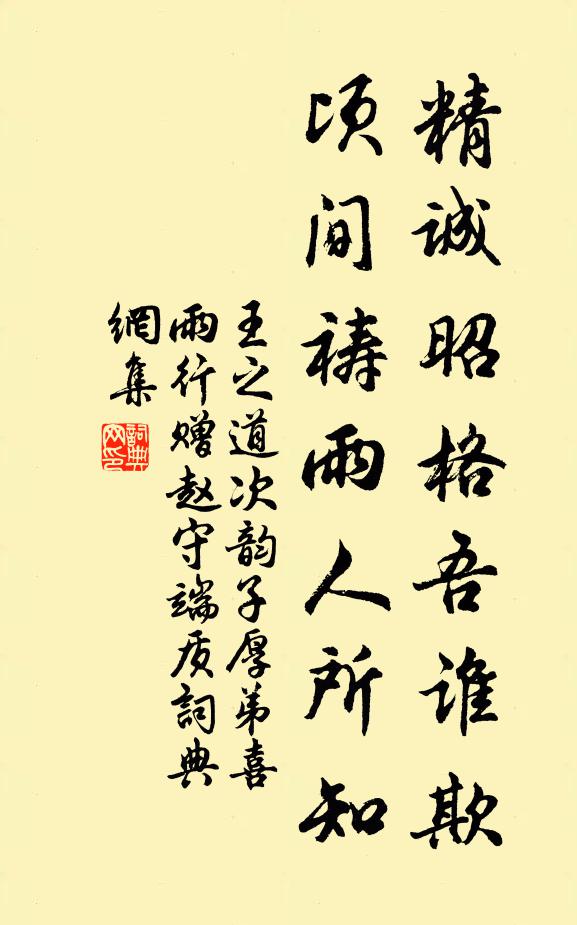 精诚昭格吾谁欺
顷间祷雨人所知
王之道次韵子厚弟喜
雨行赠赵守端质詞典
網集
詞典
网印